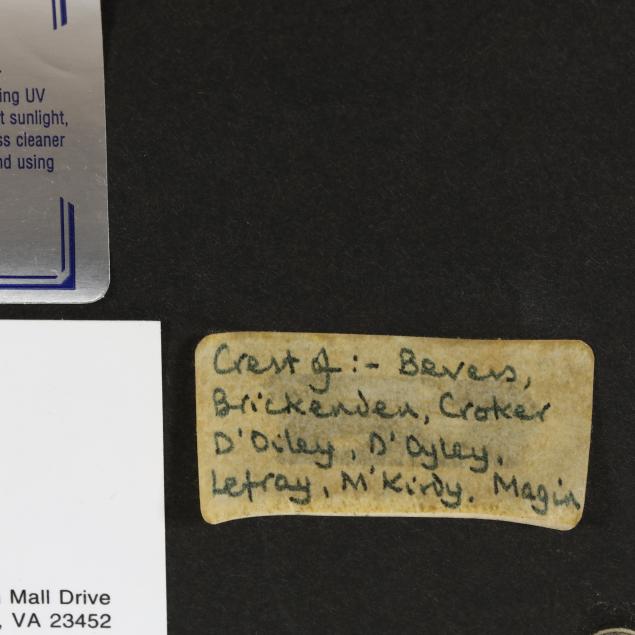 ing UV
t sunlight,
ss cleaner
nd using
Crest of :- Bevers,
Brickenden, Croker
D'Oiley, D'Oyley.
Lefray, M'Kirdy. Magin
Mall Drive
, VA 23452